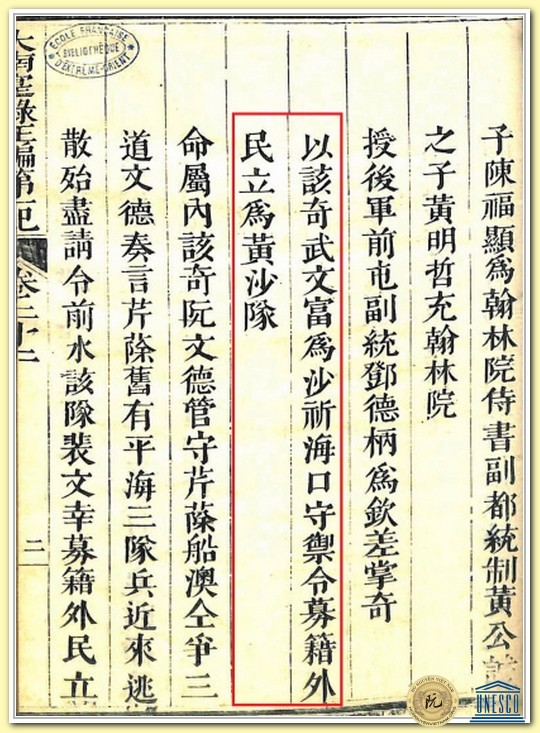 子陳福顯爲翰林院侍書副都統制黃公
之子黃明哲充翰林院
授後軍前屯副統鄧德柄爲欽差掌奇
以該奇武文富爲沙祈海口守禦令募籍外
民立爲黃沙隊
命屬內該奇阮文德管守芹蒢船澳仝爭三
道文德奏言芹蒢舊有平海三隊兵近來逃
散殆盡請令前水該隊裴文幸募籍外民立
大南寔錄正編第一紀
卷二十二
二
ÉCOLE FRANÇAISE
BIBLIOTHÈQUE
D'EXTRÊME-ORIENT
阮
UNESCO